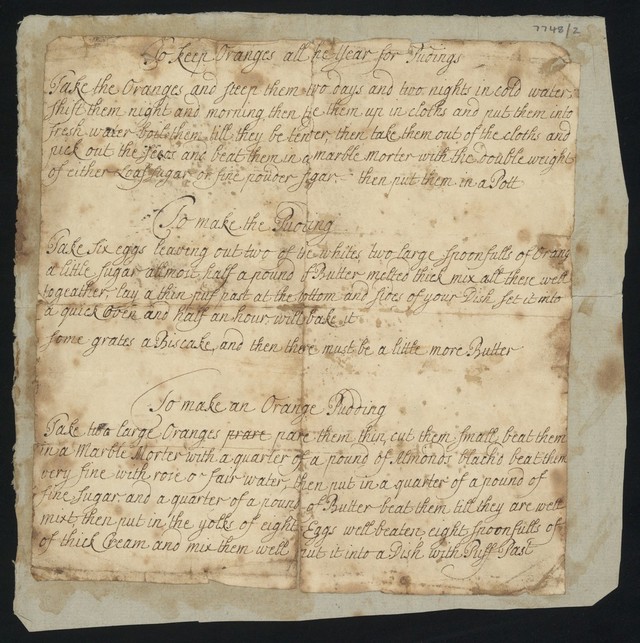 7748/2
To keep Oranges all the Year for Pudings
Take the Oranges and steep them two days and two nights in cold water
shift them night and morning then tie them up in cloths and put them into
fresh water boyle them till they be tender, then take them out of the cloths and
pick out the seeds and beat them in a marble morter with the double weight
of either Loaf sugar or fine pouder sugar. then put them in a Pott
To make the Puding
Take six eggs leaving out two of the whites, two large spoonfulls of Orang
a little sugar allmost half a pound of Butter melted thick mix all these well
togeather, lay a thin puf past at the bottom and sides of your Dish set it into
a quick Oven and half an hour will bake it
some grates a Biscake, and then there must be a little more Butter
To make an Orange Pudding
Take two large Oranges pare them thin, cut them small, beat them
in a Marble Morter with a quarter of a pound of Almonds blach'd beat them
very fine with rose or fair water, then put in a quarter of a pound of
fine sugar and a quarter of a pound of Butter beat them till they are well
mixt, then put in the yolks of eight Eggs well beaten eight spoonfulls of
of thick Cream and mix them well put it into a Dish with Puff Past